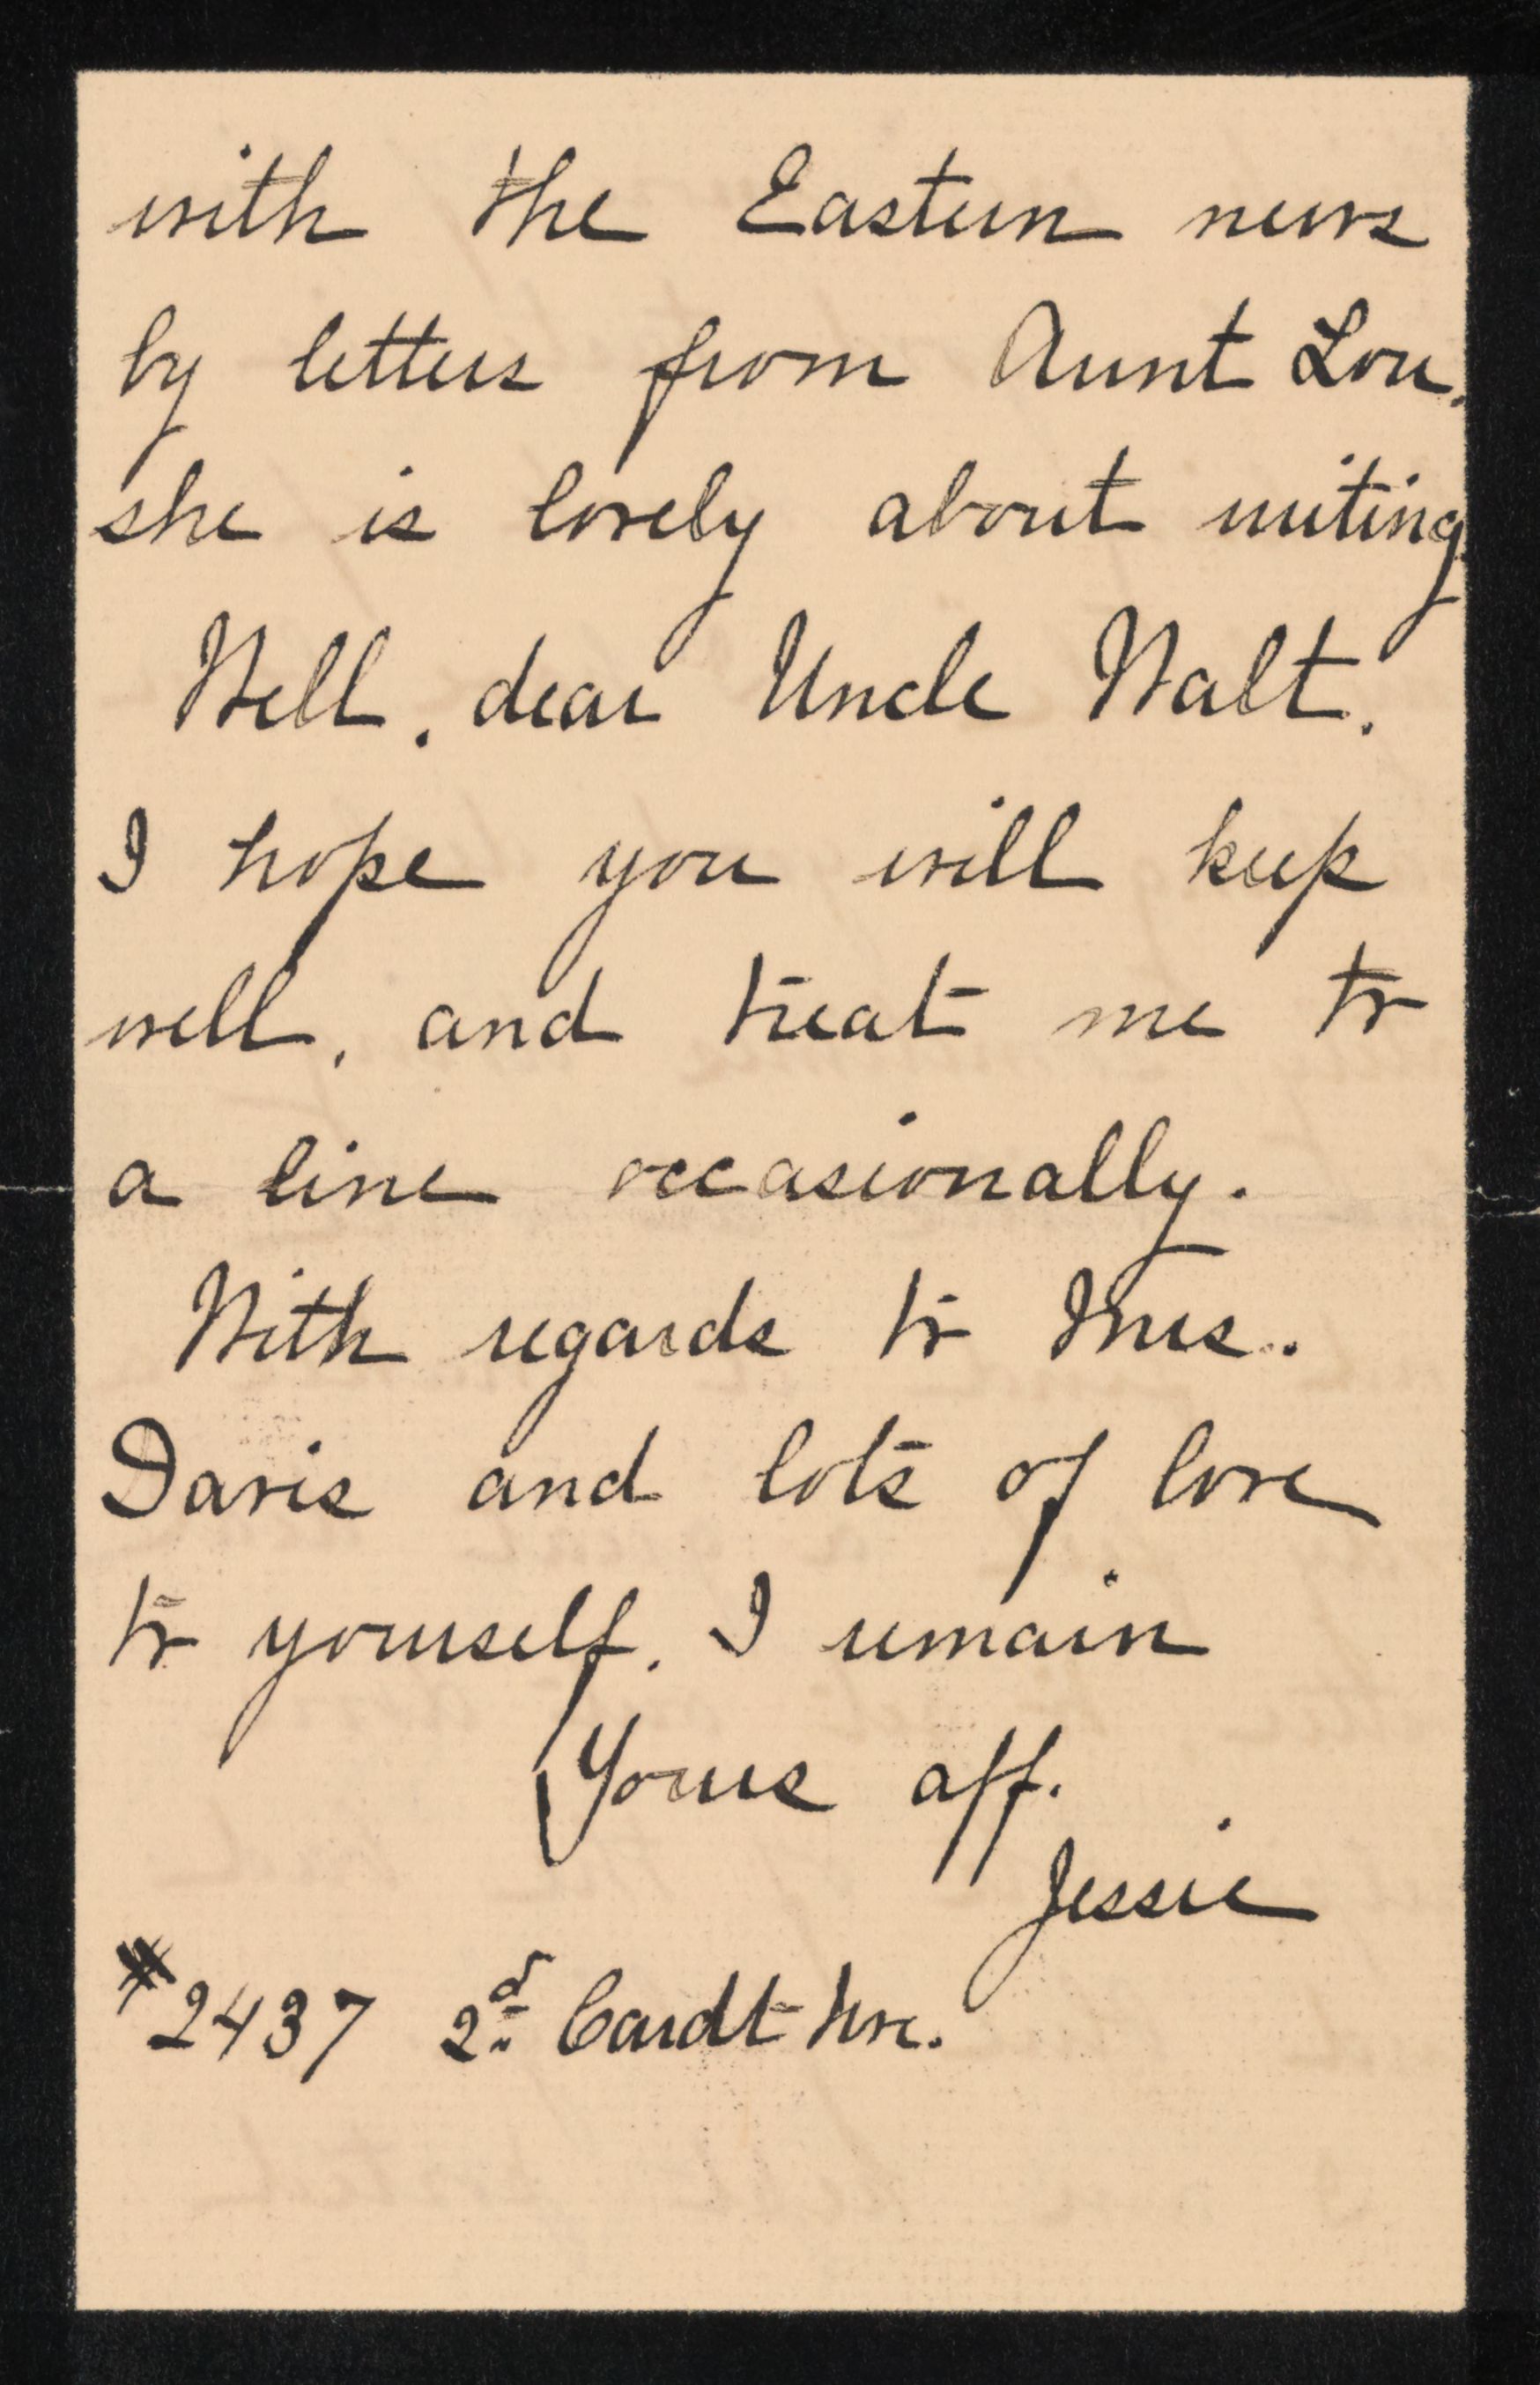 with the Eastern news
by letters from Aunt Lou,
she is lovely about writing.
Well, dear Uncle Walt,
I hope you will keep
well, and treat me to
a line occasionally.
With regards to Mrs.
Davis and lots of love
to yourself, I remain
Yours aff.
Jessie
#2437 2d Caroldt Ave.